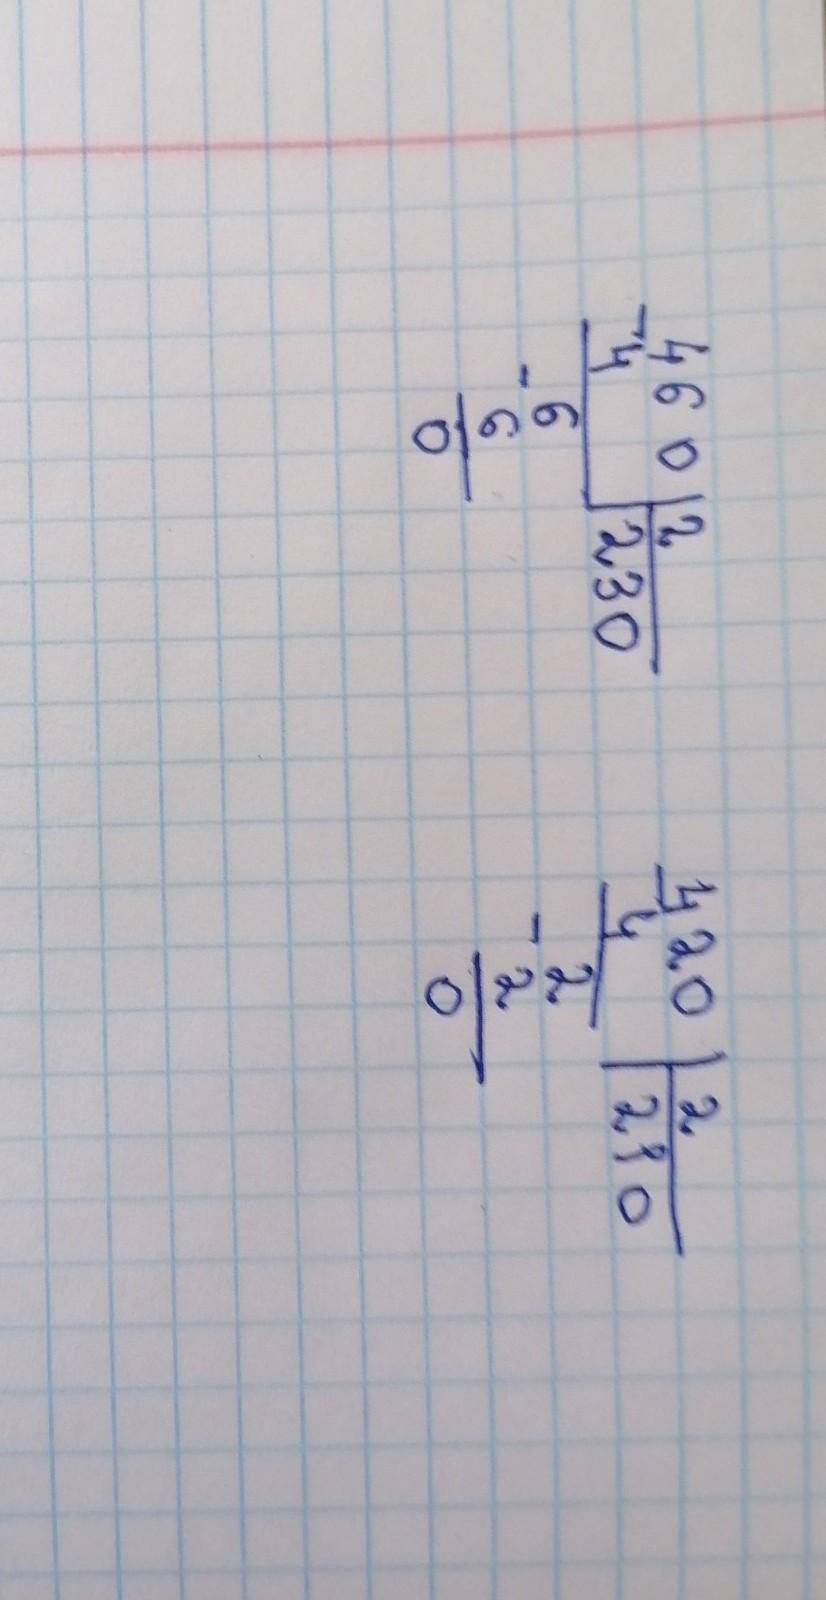 460 | 2
-4 230
-6
6
0
420 | 2
-4 210
-2
2
0